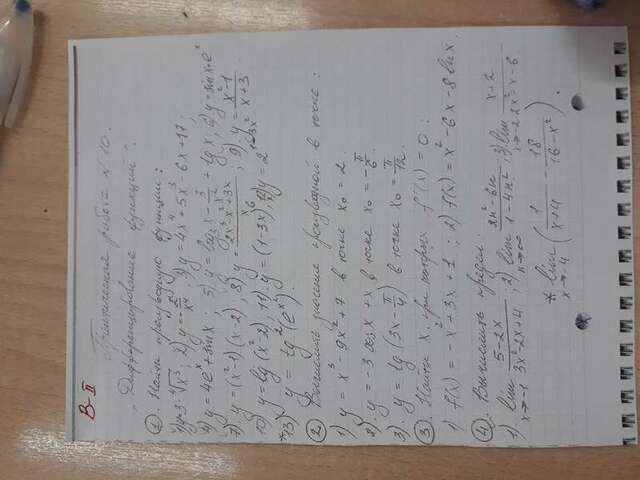 В-II
Практическая работа №10.
"Дифференцирование функций".
①. Найти производную функции:
1) y=3·∜x³; 2) y=-5/x⁴; 3) y=4x⁴+5x³-6x+17.
4) y=4eˣ+sinx; 5) y=log₂x-3/x+lgx; 6) y=sinx·eˣ
7) y=(x²-1)(x-2); 8) y= /x⁶; 9) y=(x²-1)/(x+3)
10) y=lg(x²-2); 11) y=(1-3x)⁷; 12) y=2
*13) y=lg²(eˣ).
② Вычислить значение производной в точке:
1) y=x³-9x²+7 в точке x₀=2.
2). y=-3cosx+x в точке x₀=-π/6.
3). y=tg(3x-π/4) в точке x₀=π/12.
③ Найти x, при котором f'(x)=0:
1) f(x)=-x²+3x+1; 2) f(x)=x²-6x-8lnx.
④. Вычислить предел:
1) lim x→-1 (5-2x)/(3x²-2x+4); 2) lim n→∞ (2n²-6n)/(1-4n²); 3) lim x→-2 (x+2)/(2x²-x-6)
* lim x→-4 (1/(x+4) - 18/(16-x²)).